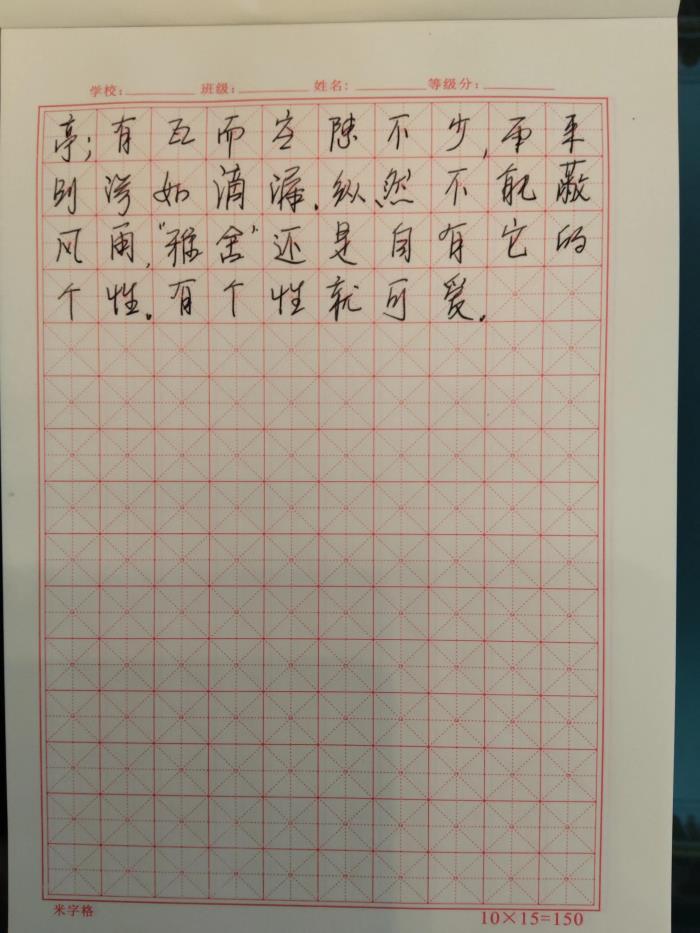 学校:________ 班级:________ 姓名:________ 等级分:________
亭;有瓦而空隙不少,雨来
则渗如滴漏.纵然不能蔽
风雨,“雅舍”还是自有它的
个性.有个性就可爱.
米字格 10×15=150